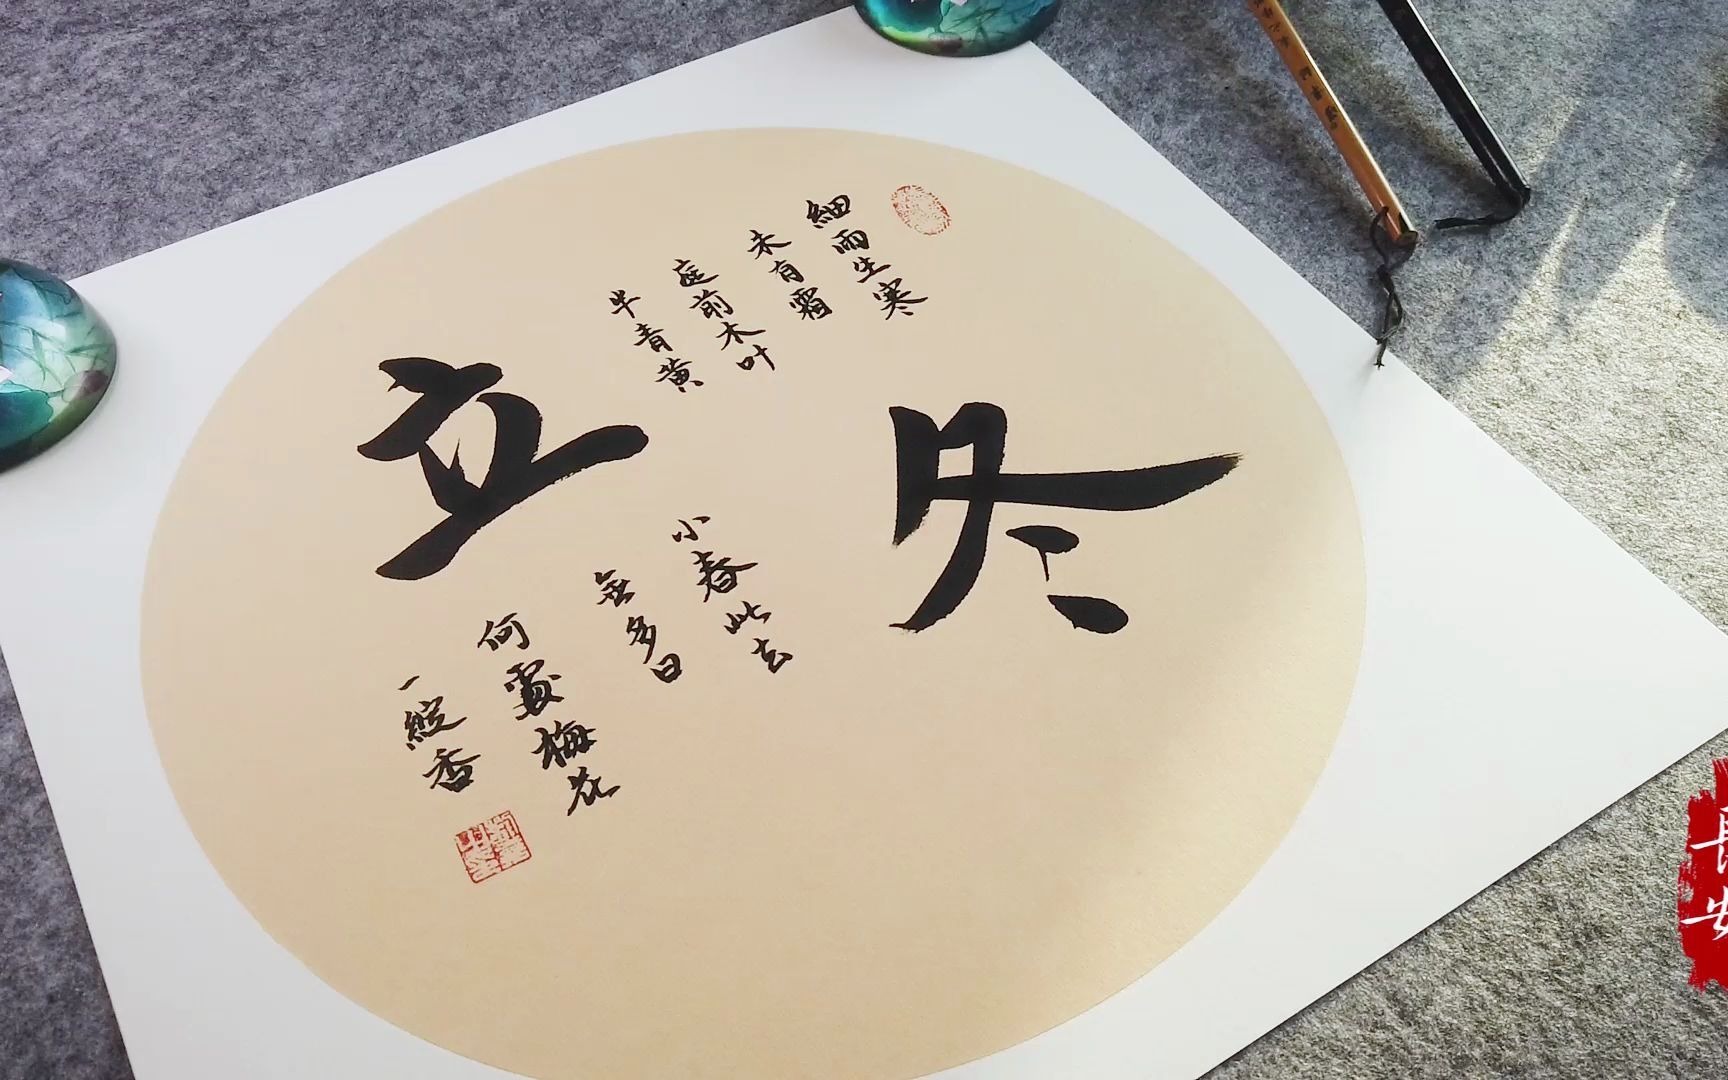 立冬
細雨生寒
未有霜
庭前木叶
半青黄
小春此去
無多日
何處梅花
一綻香